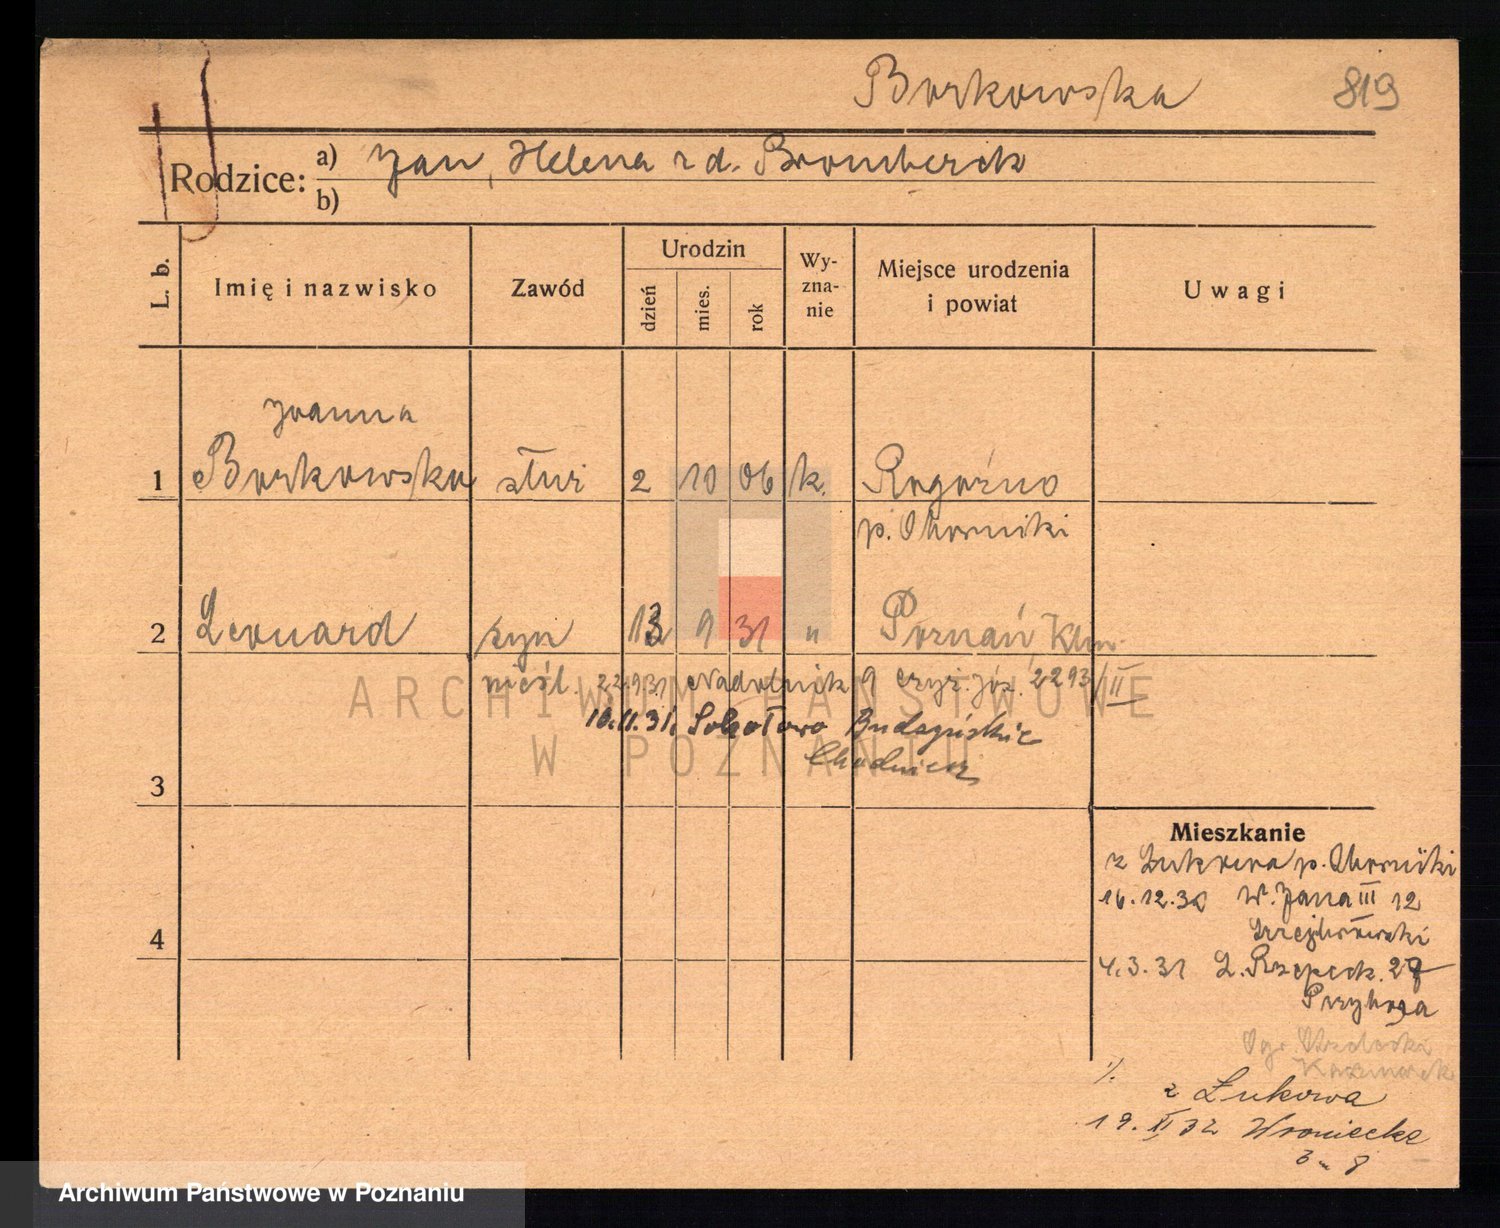 Borkowska 819
Rodzice: a) Jan, Helena z d. Bromberek
b)
L. b. Imię i nazwisko Zawód Urodzin dzień mies. rok Wy-zna-nie Miejsce urodzenia i powiat Uwagi
Joanna
1 Borkowska służ 2 10 06 k. Rogoźno
p. Oborniki
2 Leonard syn 13 9 31 " Poznań, Klin.
nieśl. 22.9.31 Nadolnik 9 2293/II
10.11.31. Sokołowo Budzyńskie
Chodzież
3
4
Mieszkanie
z Łukowa p. Oborniki
16.12.30 W. Jana III 12
4.3.31 Ł. Rzepeck. 27
Przybyła
Kaczmarek
z Łukowa
19. XI 32 Wroniecke
3 m 8
ARCHIWUM PAŃSTWOWE
W POZNANIU
Archiwum Państwowe w Poznaniu